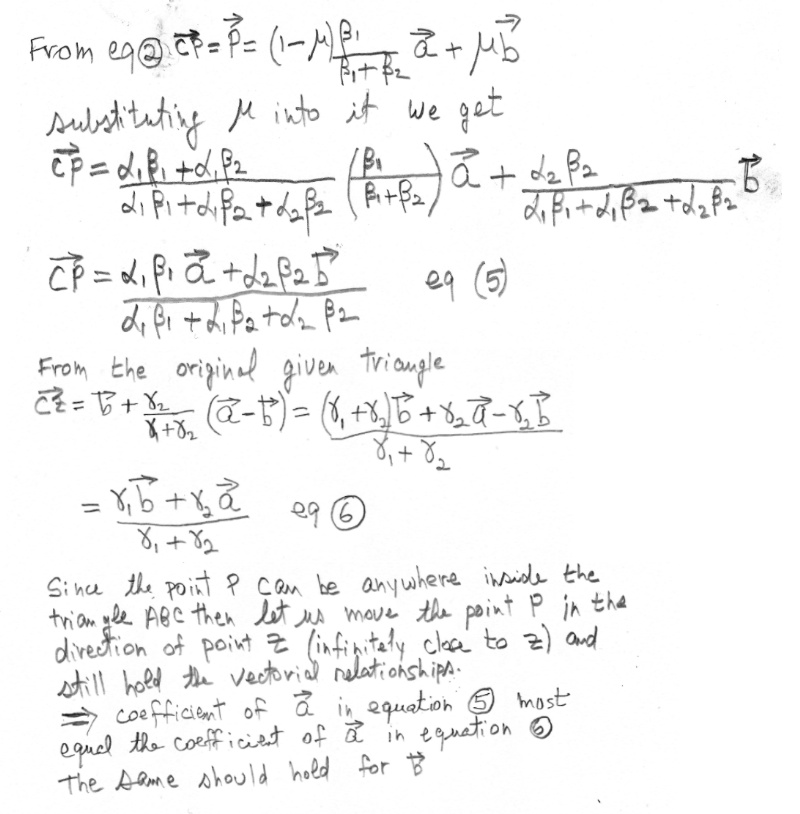 From eq② C⃗P = P⃗ = (1-μ) β₁/(β₁+β₂) a⃗ + μb⃗
substituting μ into it we get
C⃗P = (α₁β₁+α₁β₂)/(α₁β₁+α₁β₂+α₂β₂) (β₁/(β₁+β₂)) a⃗ + α₂β₂/(α₁β₁+α₁β₂+α₂β₂) b⃗
C⃗P = (α₁β₁a⃗ + α₂β₂b⃗)/(α₁β₁+α₁β₂+α₂β₂) eq (5)
From the original given triangle
C⃗z = b⃗ + γ₂/(γ₁+γ₂) (a⃗-b⃗) = ((γ₁+γ₂)b⃗ + γ₂a⃗ - γ₂b⃗)/(γ₁+γ₂)
= (γ₁b⃗ + γ₂a⃗)/(γ₁+γ₂) eq ⑥
Since the point P can be anywhere inside the
triangle ABC then let us move the point P in the
direction of point z (infinitely close to z) and
still hold the vectorial relationships.
⇒ coefficient of a⃗ in equation ⑤ most
equal the coefficient of a⃗ in equation ⑥
The same should hold for b⃗